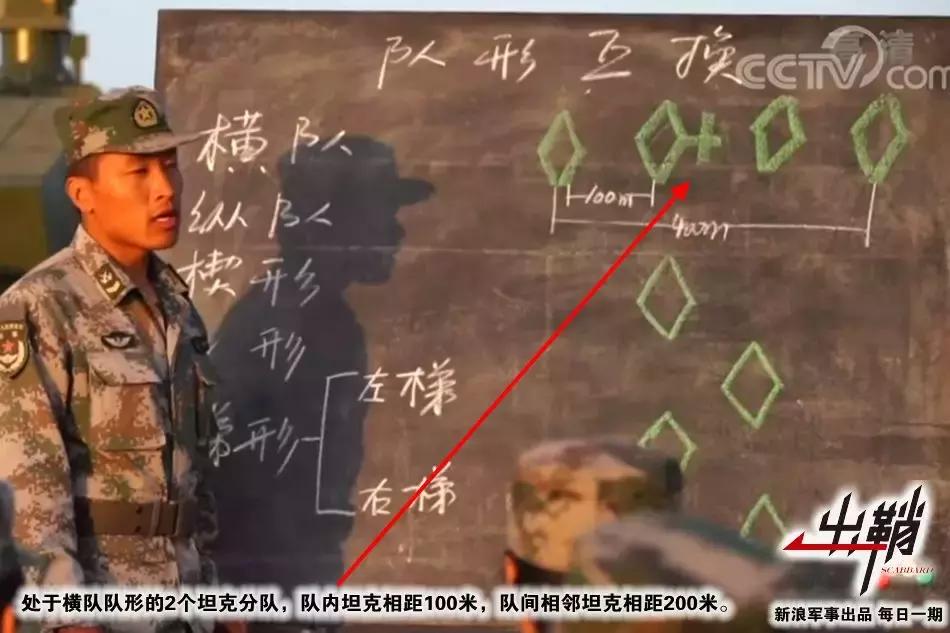 队形互换
高清
CCTV.com
横队
100m
400m
纵队
楔形
形
梯形
左梯
右梯
出鞘
SCABBARD
处于横队队形的2个坦克分队，队内坦克相距100米，队间相邻坦克相距200米。
新浪军事出品 每日一期